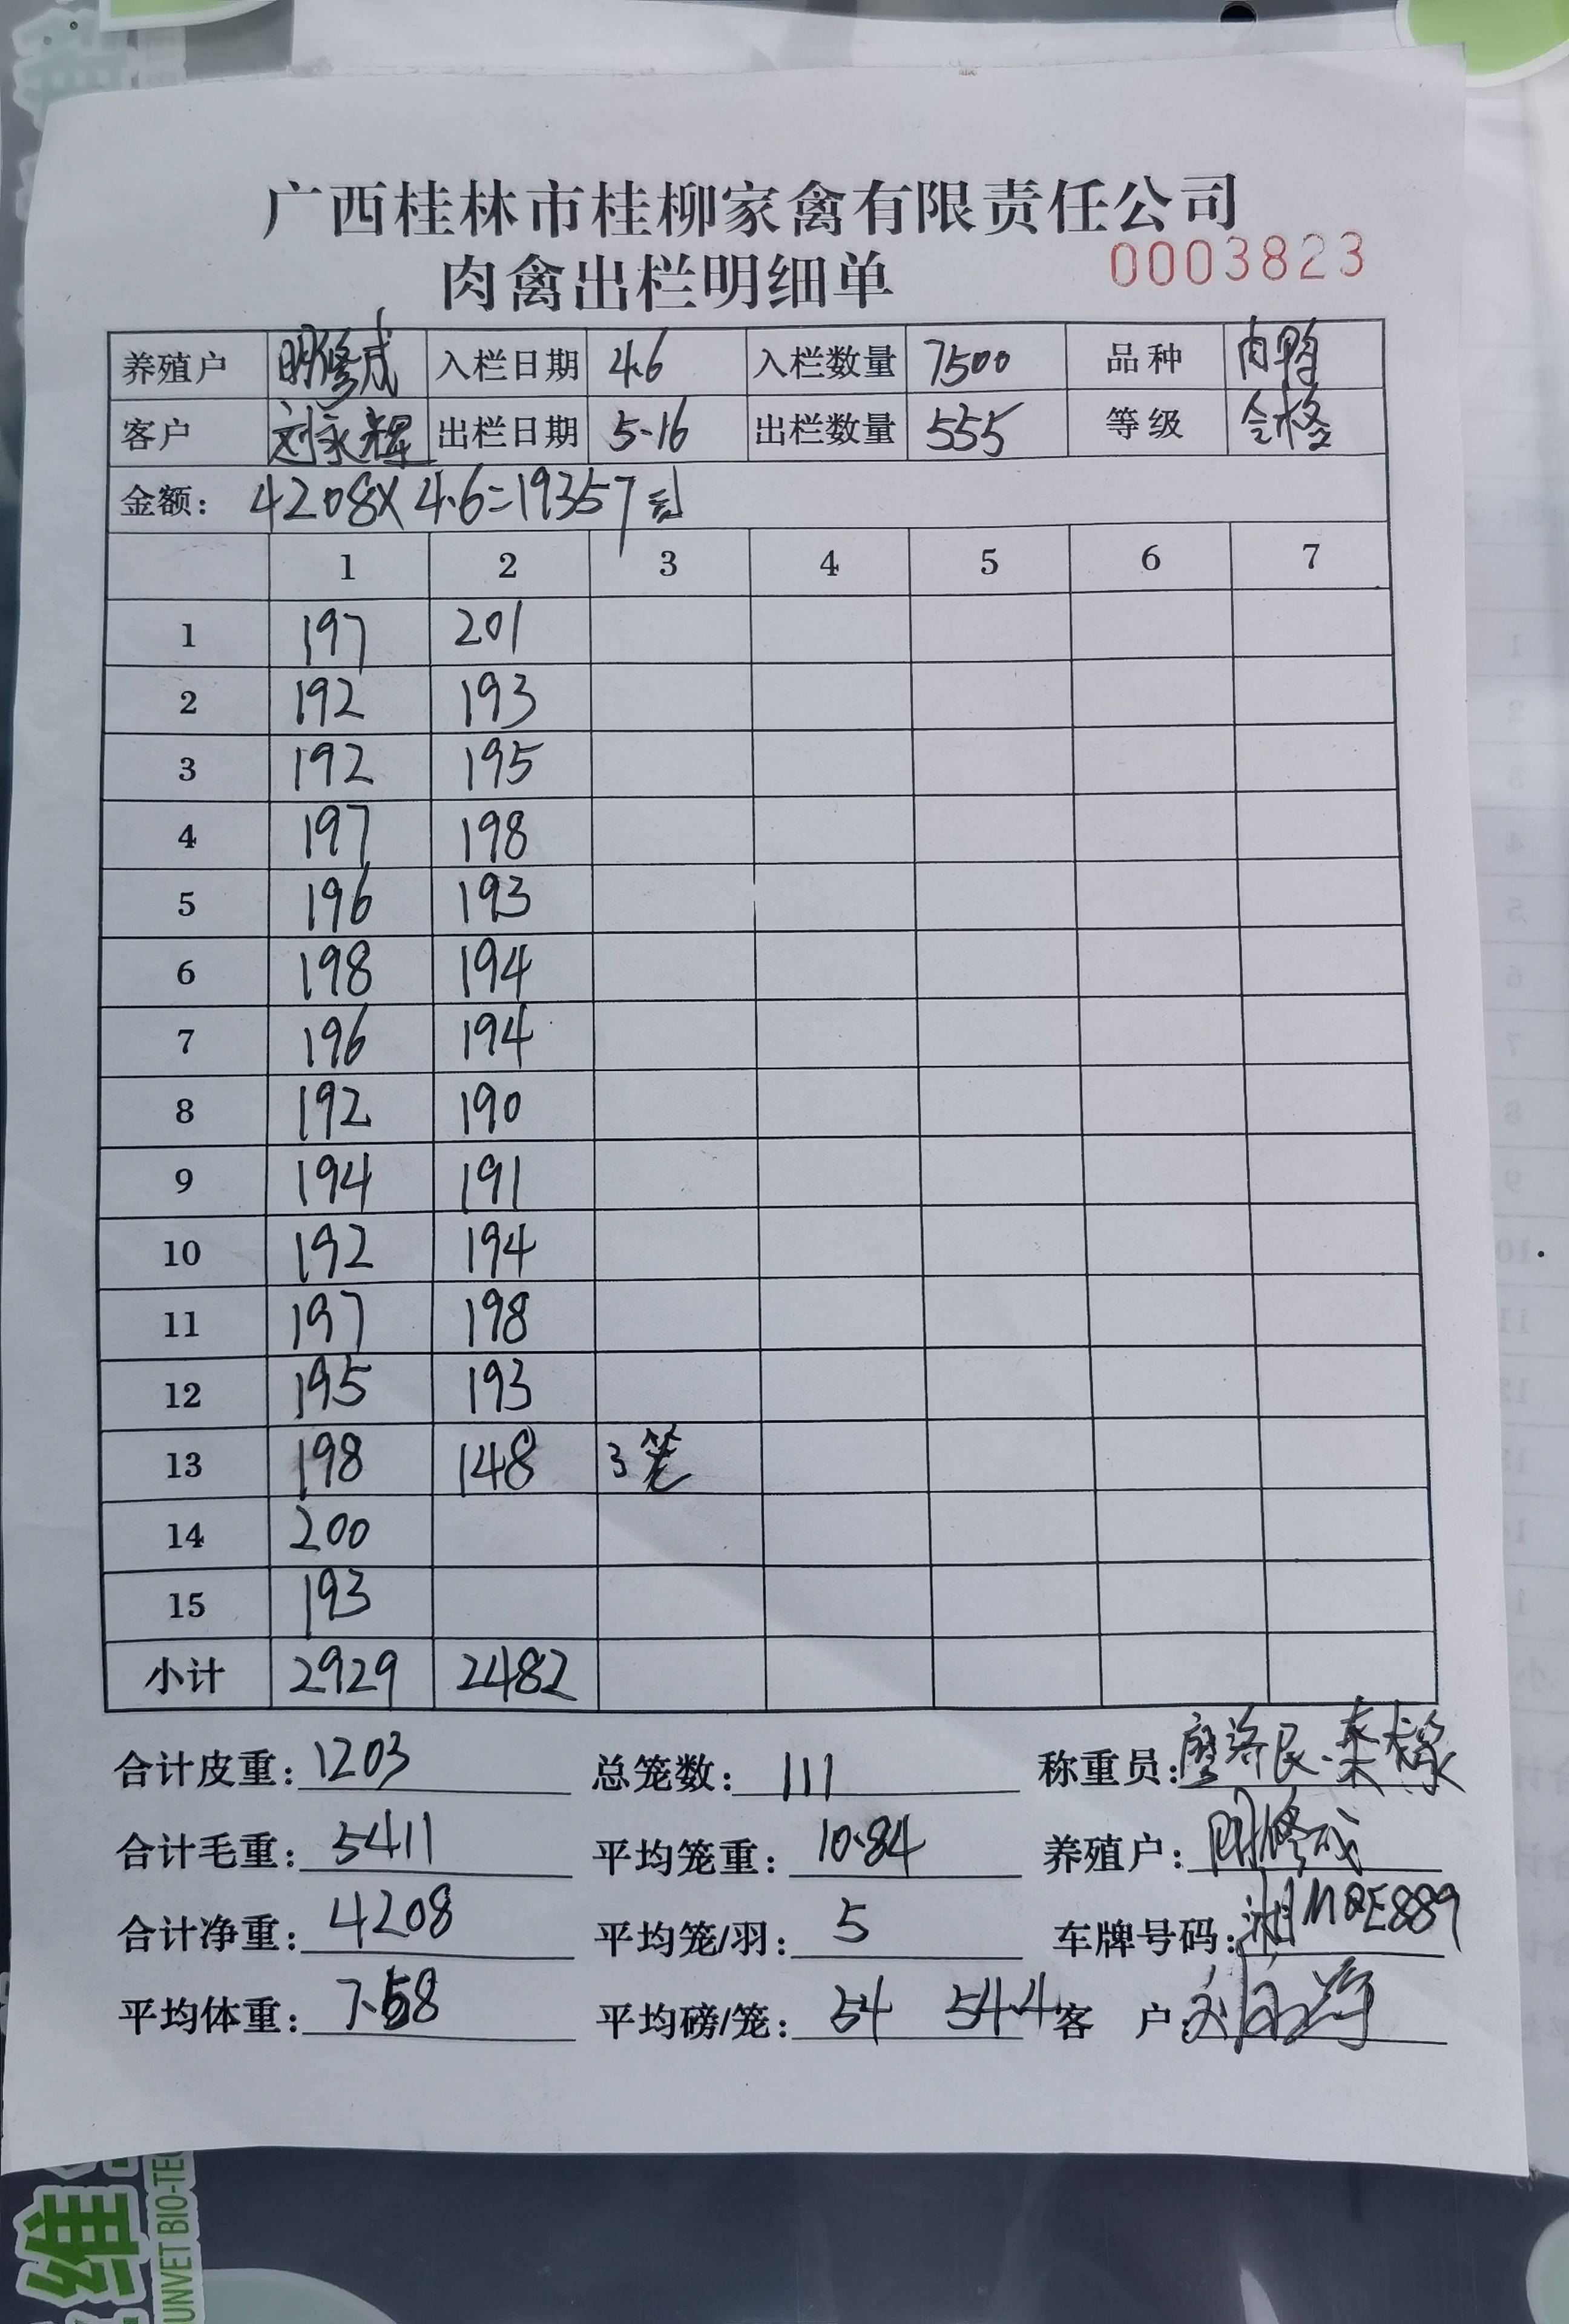 广西桂林市桂柳家禽有限责任公司
肉禽出栏明细单 0003823
养殖户 明修成 入栏日期 4.6 入栏数量 7500 品种 肉鸭
客户 刘永辉 出栏日期 5.16 出栏数量 555 等级 合格
金额: 4208×4.6=19357元
1 2 3 4 5 6 7
1 197 201
2 192 193
3 192 195
4 197 198
5 196 193
6 198 194
7 196 194
8 192 190
9 194 191
10 192 194
11 197 198
12 195 193
13 198 148 3笼
14 200
15 193
小计 2929 2482
合计皮重: 1203 总笼数: 111 称重员:
合计毛重: 5411 平均笼重: 10.84 养殖户: 明修成
合计净重: 4208 平均笼/羽: 5 车牌号码: 湘MQE889
平均体重: 7.58 平均磅/笼: 54 54.4 客 户:
维
UNVET BIO-TEC